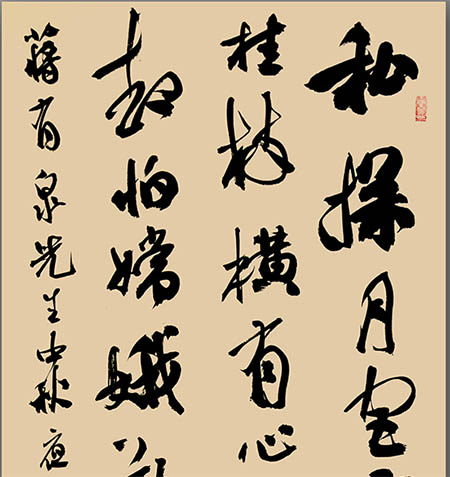 私探月宫
桂枝横有心
却怕嫦娥
蒋有泉先生中秋夜